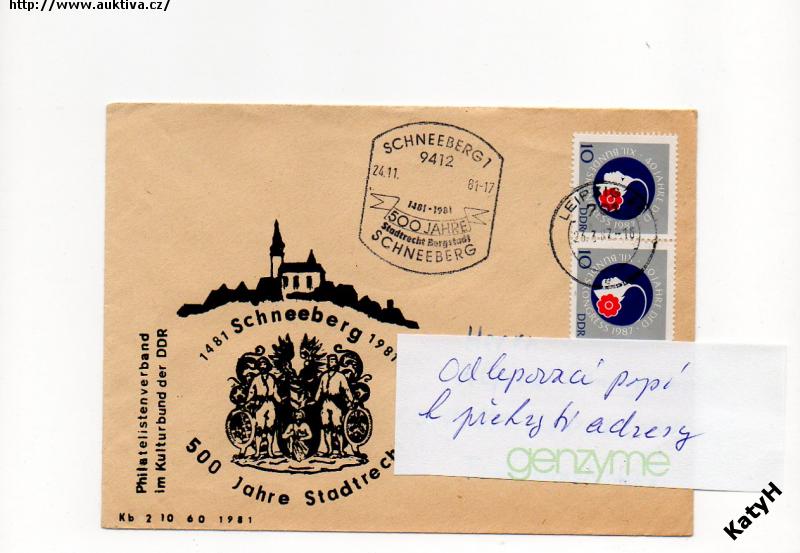 http://www.auktiva.cz/
SCHNEEBERG 1
9412
24.11. 81-17
1481-1981
500 JAHRE
Stadtrecht Bergstadt
SCHNEEBERG
10
40 JAHRE DFD
XII. BUNDESKONGRESS 1987
DDR
LEIPZIG
10
40 JAHRE DFD
XII. BUNDESKONGRESS 1987
DDR
1481 Schneeberg 1981
500 Jahre Stadtrech
Philatelistenverband
im Kulturbund der DDR
Kb 2 10 60 1981
Odlepovací
k překrytí adresy
genzyme
KatyH